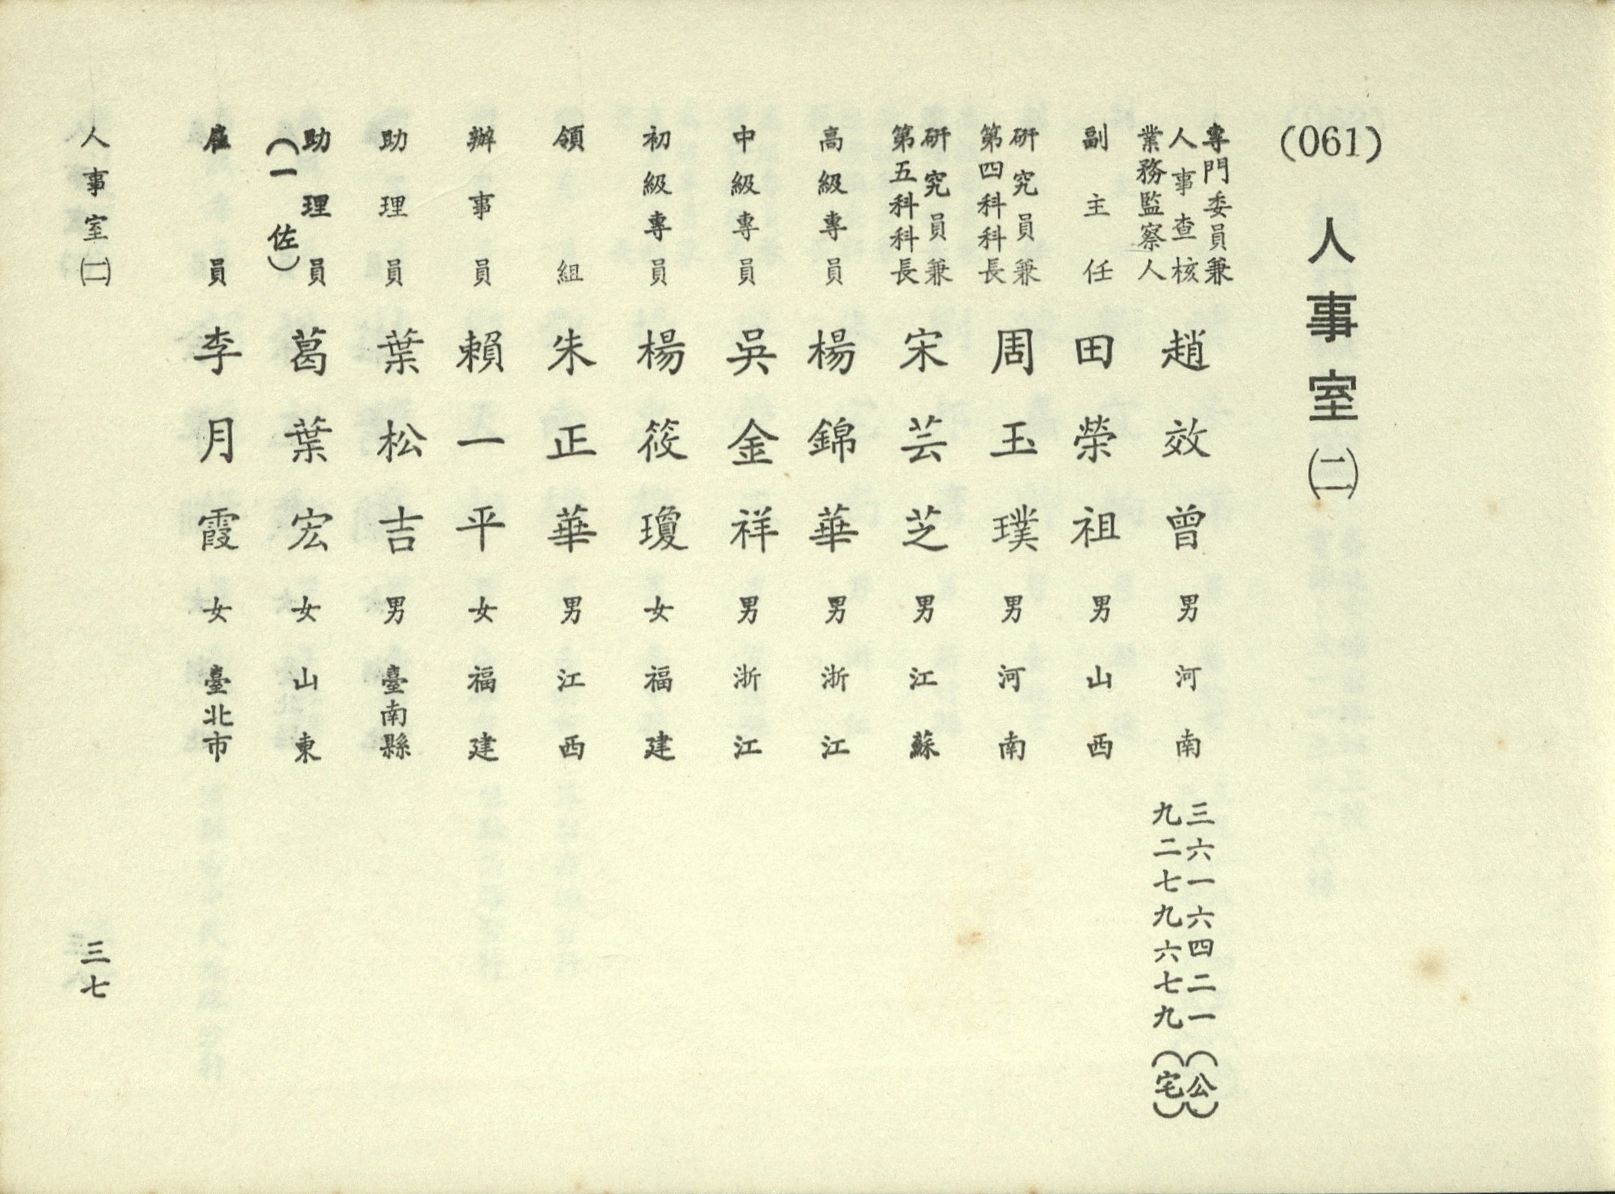 (061) 人事室㈡
專門委員兼
人事查核
業務監察人 趙效曾 男 河南 三六一六四二一(公)
九二七九六七九(宅)
副主任 田榮祖 男 山西
研究員兼
第四科科長 周玉璞 男 河南
研究員兼
第五科科長 宋芸芝 男 江蘇
高級專員 楊錦華 男 浙江
中級專員 吳金祥 男 浙江
初級專員 楊筱瓊 女 福建
領組 朱正華 男 江西
辦事員 賴一平 女 福建
助理員 葉松吉 男 臺南縣
助理員
(一佐) 葛葉宏 女 山東
雇員 李月霞 女 臺北市
人事室㈡ 三七